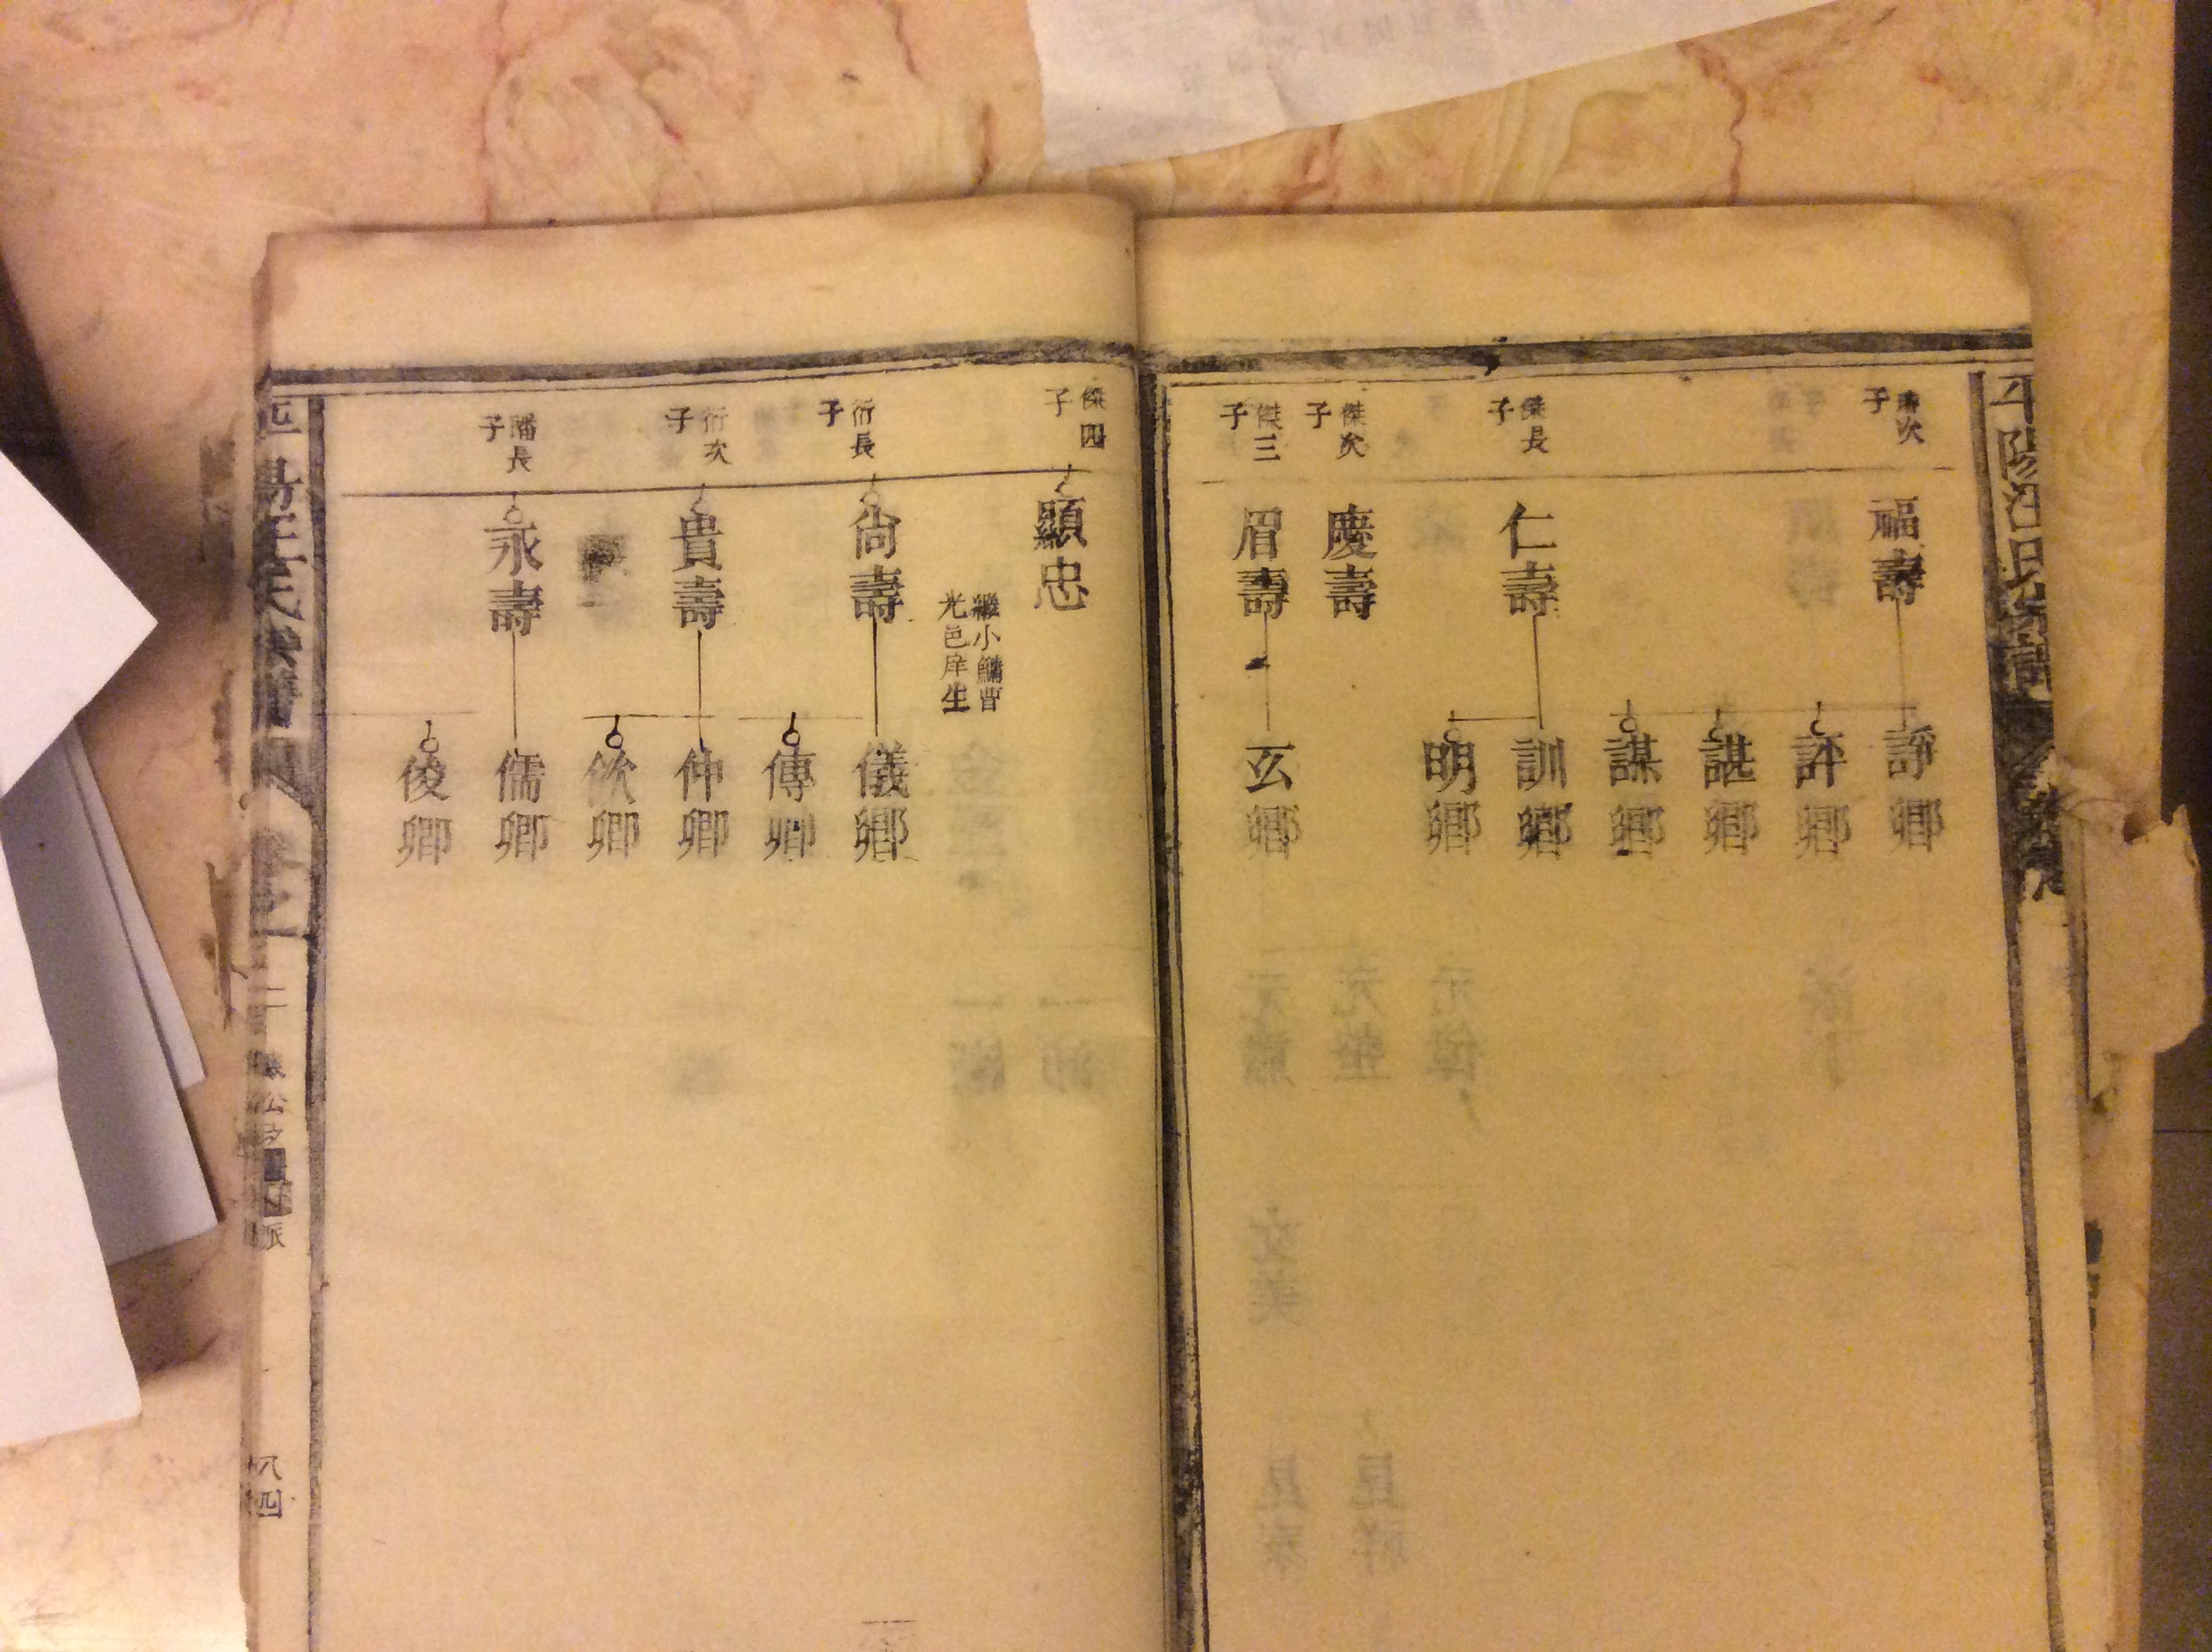 平陽汪氏
次
子
福壽
諍卿
評卿
諶卿
謀卿
傑長
子
仁壽
訓卿
明卿
傑次
子
慶壽
傑三
子
眉壽
玄卿
傑四
子
顯忠
繼小鱅曹
光邑庠生
衍長
子
尙壽
儀卿
傳卿
衍次
子
貴壽
仲卿
欽卿
長
子
永壽
儒卿
俊卿
卷之二
公
派
八四